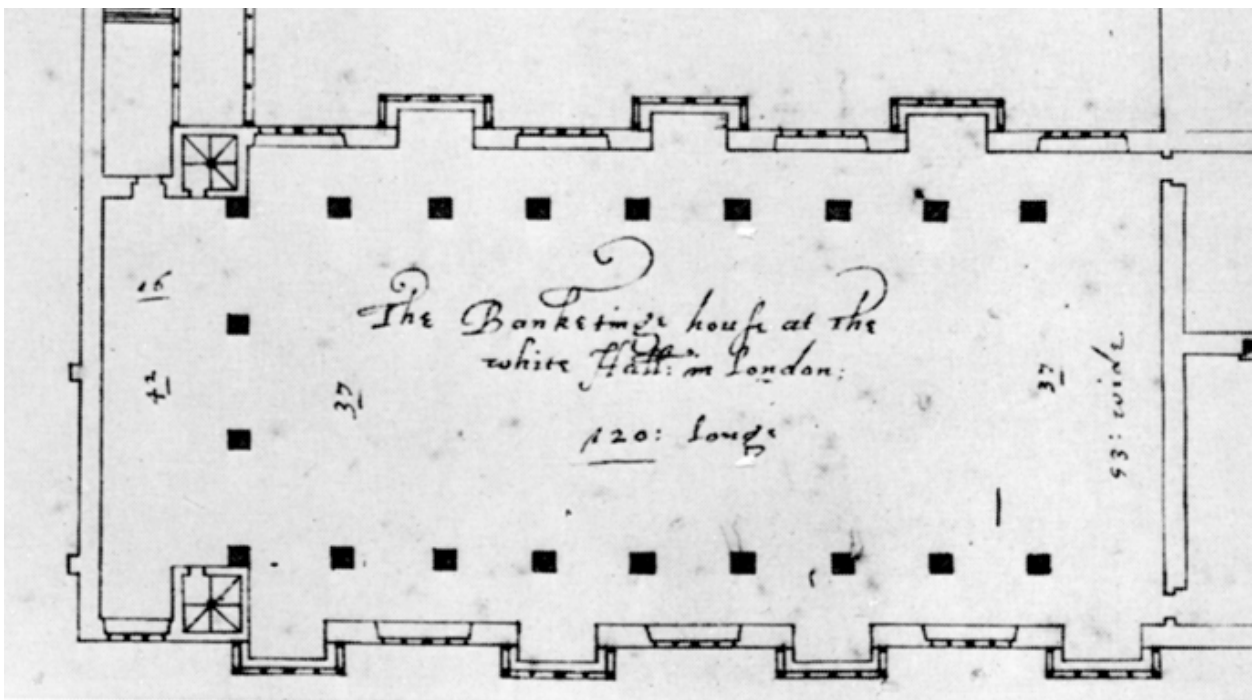 The Banketinge house at the
white Hall: in London:
120: Longe
16
42
37
37
53: wide